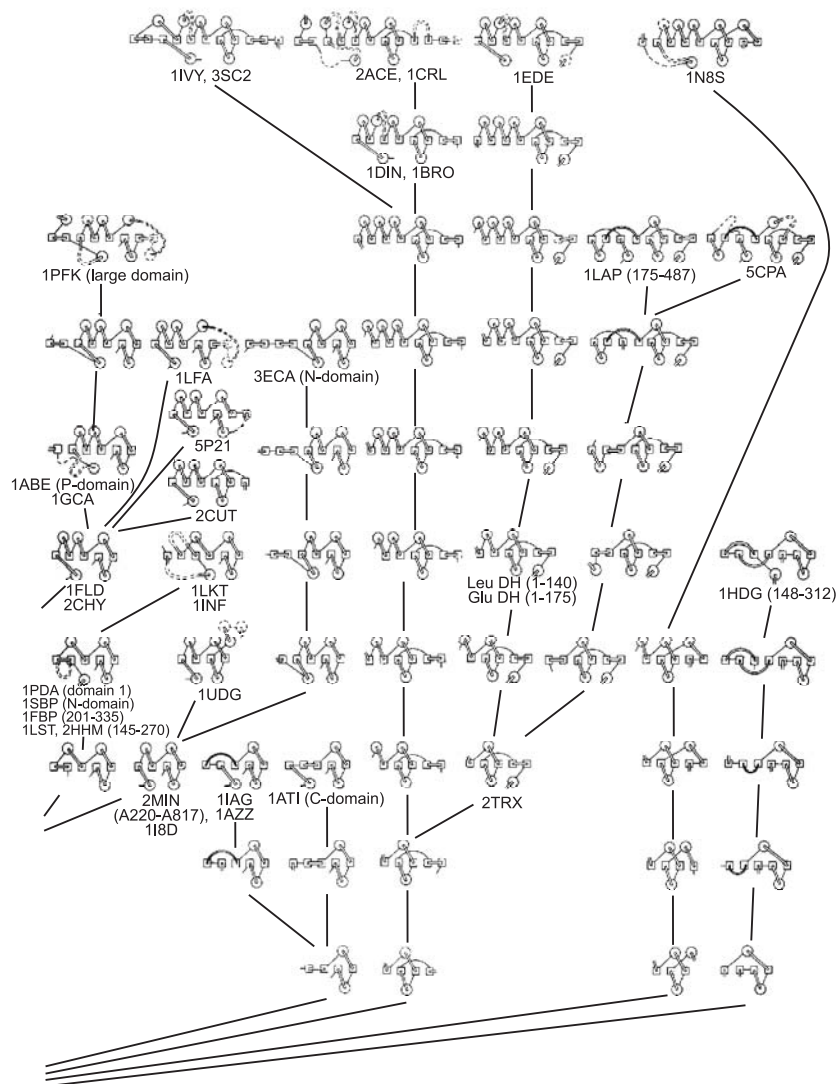 1IVY, 3SC2
2ACE, 1CRL
1EDE
1N8S
1DIN, 1BRO
1PFK (large domain)
1LAP (175-487)
5CPA
1LFA
3ECA (N-domain)
5P21
1ABE (P-domain)
1GCA
2CUT
1FLD
2CHY
1LKT
1INF
Leu DH (1-140)
Glu DH (1-175)
1HDG (148-312)
1PDA (domain 1)
1SBP (N-domain)
1FBP (201-335)
1LST, 2HHM (145-270)
1UDG
2MIN
(A220-A817),
1I8D
1IAG
1AZZ
1ATI (C-domain)
2TRX